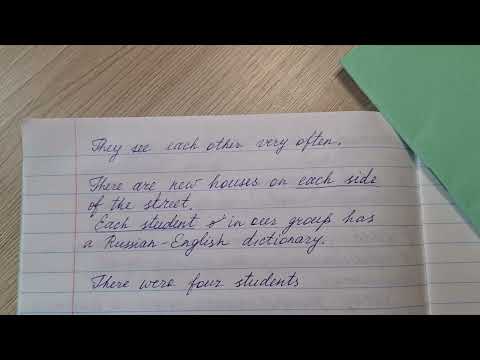 They see each other very often.
There are new houses on each side
of the street.
Each student in our group has
a Russian-English dictionary.
There were four students